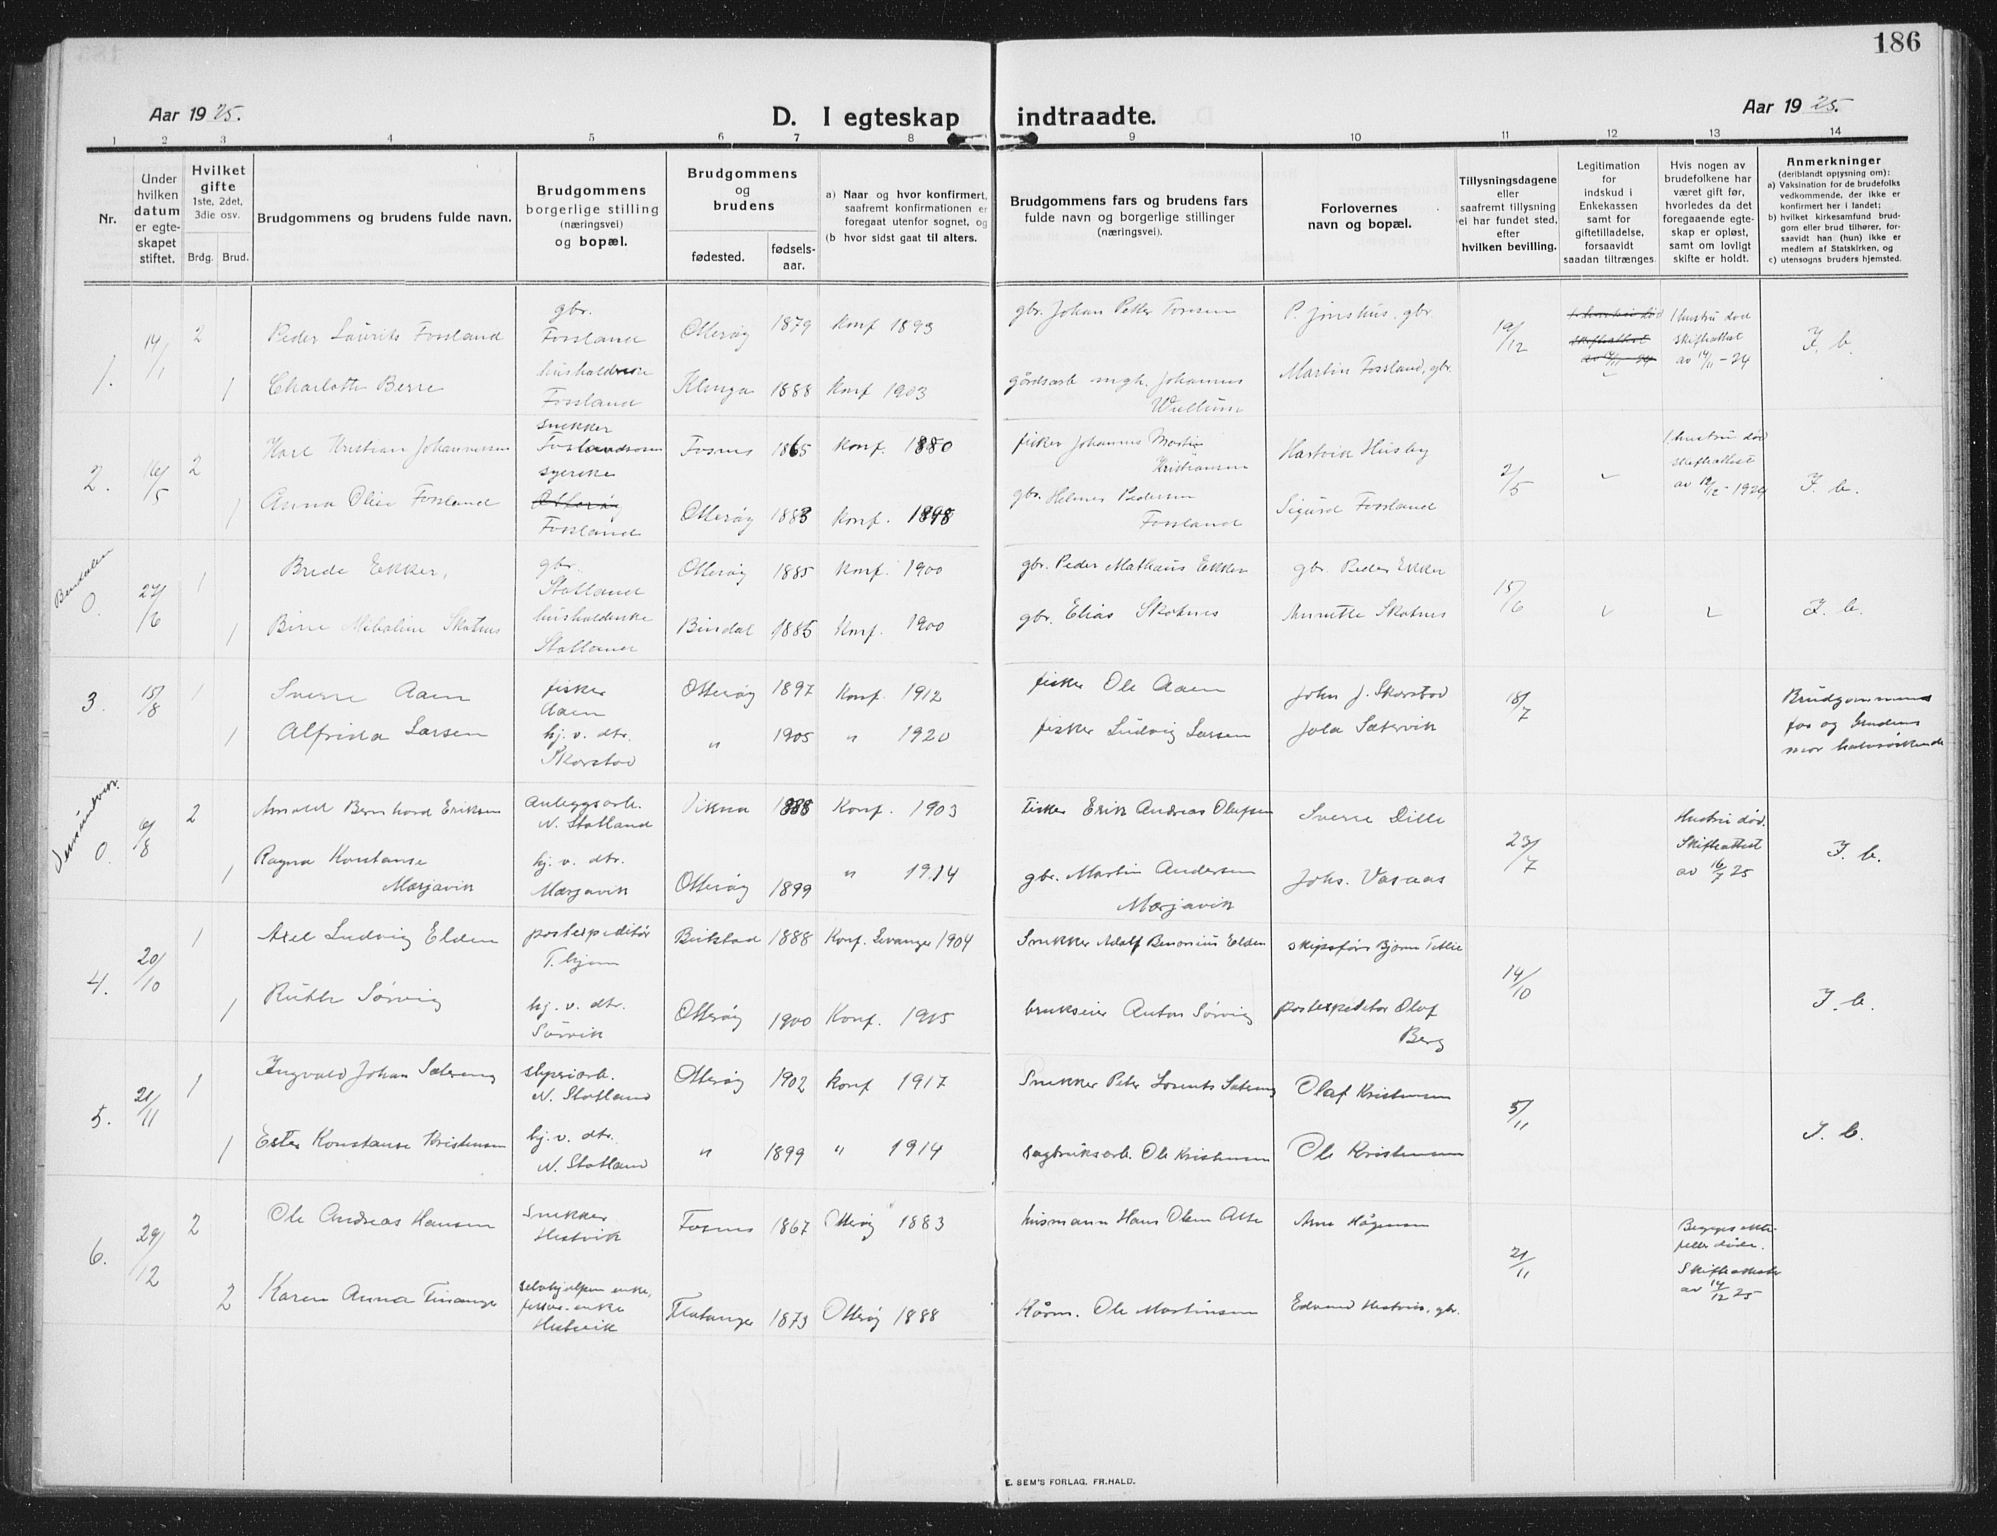 186
Aar 1925.
D. I egteskap indtraadte.
Aar 1925.
1 2 3 4 5 6 7 8 9 10 11 12 13 14
Nr.
Under hvilken datum er egteskapet stiftet.
Hvilket gifte 1ste, 2det, 3die osv.
Brdg. Brud.
Brudgommens og brudens fulde navn.
Brudgommens borgerlige stilling (næringsvei) og bopæl.
Brudgommens og brudens
fødested.
fødselsaar.
a) Naar og hvor konfirmert, saafremt konfirmationen er foregaat utenfor sognet, og
(b hvor sidst gaat til alters.
Brudgommens fars og brudens fars fulde navn og borgerlige stillinger (næringsvei).
Forlovernes navn og bopæl.
Tillysningsdagene eller saafremt tillysning ei har fundet sted, efter hvilken bevilling.
Legitimation for indskud i Enkekassen samt for giftetilladelse, forsaavidt saadan tiltrænges.
Hvis nogen av brudefolkene har været gift før, hvorledes da det foregaaende egteskap er opløst, samt om lovligt skifte er holdt.
Anmerkninger (deriblandt opjysning om): a) Vaksination for de brudefolks vedkommende, der ikke er konfirmert her i landet; b) hvilket kirkesamfund brudgom eller brud tilhører, forsaavidt han (hun) ikke er medlem af Statskirken, og c) utensogns bruders hjemsted.
1. 14/1 2 Peder Laurits Fossland gbr. Fossland Otterøy 1879 Konf 1893 gbr. Johan Petter P. Jonshus, gbr 19/12 1 hustru død skifteattest av 14/11-24 I. b.
1 Charlotte Berre husholderske Fossland Klinga 1888 Konf 1903 gårdsarb Johannes Wullum Martin Fossland, gbr.
2. 16/5 2 Karl Kristian Johannessen snekker Fosnes 1865 Konf. 1880 fisker Johannes Martin Kristiansen Hartvik Husby 2/5 1 hustru død skifteattest av 19/12-1924 I. b.
1 Anna Olie Fossland syerske Otterøy Fossland Otterøy 1883 Konf. 1898 gbr. Helmer Pedersen Fossland Sigurd Fossland
Bindalen 0. 27/6 1 Brede Ekker, gbr. Statland Otterøy 1885 Konf. 1900 gbr. Peder Mathæus Ekker gbr. Peder Ekker 15/6 I. b.
1 Skotnes husholderske Statland Bindal 1885 Konf. 1900 gbr. Elias Skotnes Annette Skotnes
3. 15/8 1 Sverre Aaen fisker Aaen Otterøy 1897 Konf. 1912 fisker Ole Aaen John J. Skorstad 18/7 Brudgommens far og brudens mor halvsøskende
1 Alfrida Larsen hj. v. dtr. Skorstad " 1905 " 1920 fisker Ludvig Larsen Jola Sætervik
0. 6/8 2 Arnold Bernhard Eriksen anleggsarb. N. Statland Vikna 1888 Konf. 1903 fisker Erik Andreas Olufsen Sverre Dille 23/7 Hustru død. Skifteattest av 16/7 25 I. b.
1 Ragna Konstanse Mærjavik hj. v. dtr. Mærjavik Otterøy 1899 " 1914 gbr. Martin Andersen Mærjavik Johs. Vasaas
4. 20/10 1 Axel Ludvig Elden postexpeditør T.hjem Beitstad 1888 Konf. Levanger 1904 Snekker Adolf Benonius Elden skipsfører Bjarne Tetlie 14/10 I. b.
1 Ruth Sørvig hj. v. dtr. Sørvik Otterøy 1900 Konf. 1915 brukseier Anton Sørvig postexpeditør Olaf Berg
5. 21/11 1 Ingvald Johan Sætervig sliperiarb. N. Statland Otterøy 1902 Konf 1917 Snekker Peter Lorents Olaf Kristensen 5/11 I. b.
1 Ester Konstanse Kristensen hj. v. dtr. N. Statland " 1899 " 1914 sagbruksarb. Ole Kristensen Ole Kristensen
6. 29/12 2 Ole Andreas Hansen Snekker Hestvik Fosnes 1867 Otterøy 1883 husmann Hans Olsen Arne Hågensen 21/11 Begges ektefeller døde. Skifteattest av 14/12 25
2 Karen Anna selvhjulpen enke, Hestvik Flatanger 1873 Otterøy 1888 Kårm. Ole Martinsen Edvard Hestvik, gbr.
E. SEM'S FORLAG, FR.HALD.